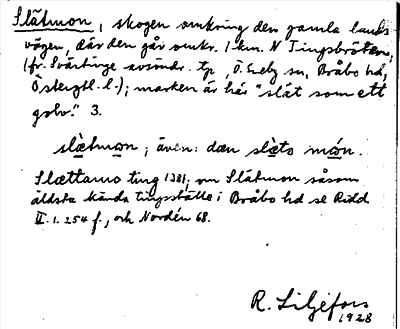 Slätmon, skogen omkring den gamla lands
vägen, där den går omkr. 1 km. N Tingsbröten,
(fr. Svärtinge avsöndr. tp, Ö. Eneby sn, Bråbo hd,
Östergtl. l.); marken är här "slät som ett
golv." 3.
slætmon; även: dæn slæto món.
Slættamo ting 1281; om Slätmon såsom
äldsta kända tingsställe i Bråbo hd se Ridd
II. 1. 254 f., och Nordén 68.
R. Liljefors
1928